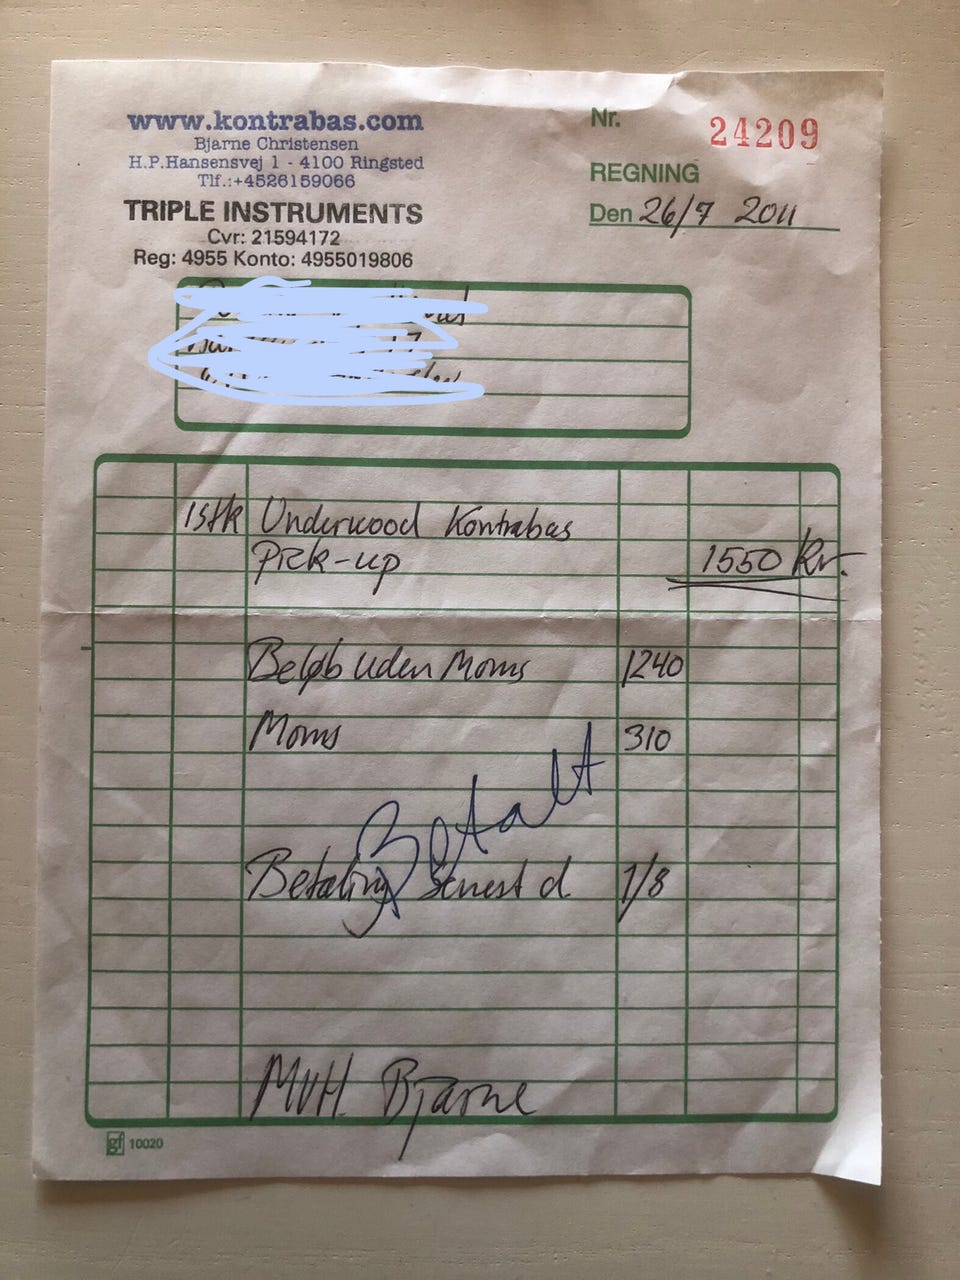 www.kontrabas.com
Bjarne Christensen
H.P.Hansensvej 1 - 4100 Ringsted
Tlf.:+4526159066
TRIPLE INSTRUMENTS
Cvr: 21594172
Reg: 4955 Konto: 4955019806
Nr. 24209
REGNING
Den 26/7 2011
1stk Underwood Kontrabas
Pick-up 1550 kr.
Beløb uden Moms 1240
Moms 310
Betalt
Betaling Senest d. 1/8
MVH. Bjarne
gf 10020